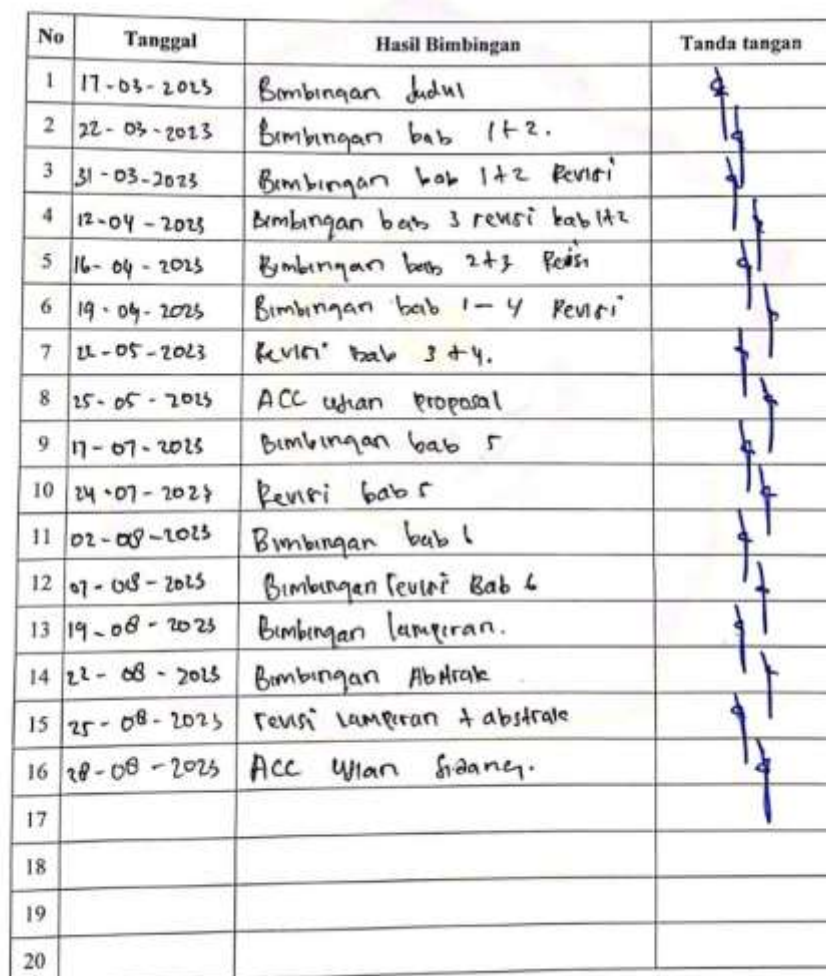 No Tanggal Hasil Bimbingan Tanda tangan
1 17-03-2023 Bimbingan Judul
2 22-03-2023 Bimbingan bab 1+2.
3 31-03-2023 Bimbingan bab 1+2 Revisi
4 12-04-2023 Bimbingan bab 3 revisi bab 1+2
5 16-04-2023 Bimbingan bab 2+3 Revisi
6 19-04-2023 Bimbingan bab 1-4 Revisi
7 22-05-2023 Revisi bab 3+4.
8 25-05-2023 ACC ujian proposal
9 17-07-2023 Bimbingan bab 5
10 24-07-2023 Revisi bab 5
11 02-08-2023 Bimbingan bab 6
12 07-08-2023 Bimbingan revisi Bab 6
13 19-08-2023 Bimbingan lampiran.
14 22-08-2023 Bimbingan Abstrak
15 25-08-2023 revisi lampiran + abstrak
16 28-08-2023 ACC Ujian Sidang.
17
18
19
20